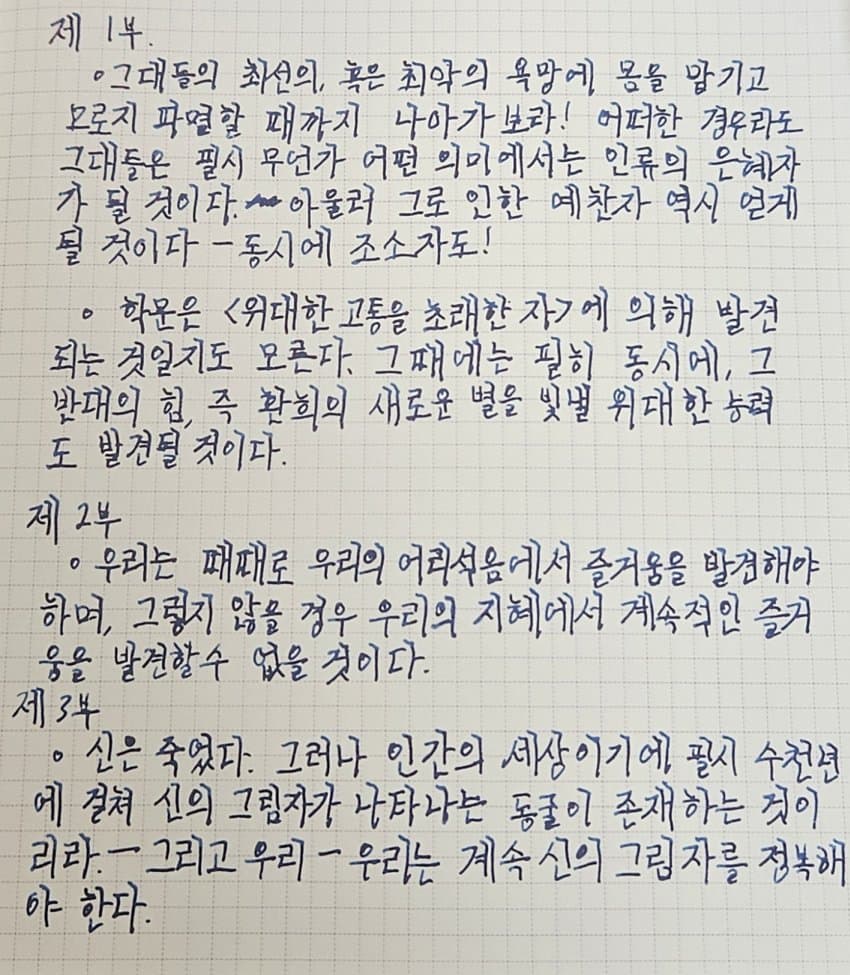 제 1부.
◦그대들의 최선의, 혹은 최악의 욕망에 몸을 맡기고
모로지 파멸할 때까지 나아가보라! 어떠한 경우라도
그대들은 필시 무언가 어떤 의미에서는 인류의 은혜자
가 될 것이다. 아울러 그로 인한 예찬자 역시 얻게
될 것이다 - 동시에 조소자도!
◦ 학문은 <위대한 고통을 초래한 자>에 의해 발견
되는 것일지도 모른다. 그때에는 필히 동시에, 그
반대의 힘, 즉 환희의 새로운 별을 빛낼 위대한 능력
도 발견될 것이다.
제 2부
◦ 우리는 때때로 우리의 어리석음에서 즐거움을 발견해야
하며, 그렇지 않을 경우 우리의 지혜에서 계속적인 즐거
움을 발견할수 없을 것이다.
제 3부
◦ 신은 죽었다. 그러나 인간의 세상이기에 필시 수천년
에 걸쳐 신의 그림자가 나타나는 동굴이 존재하는 것이
리라. - 그리고 우리 - 우리는 계속 신의 그림자를 정복해
야 한다.